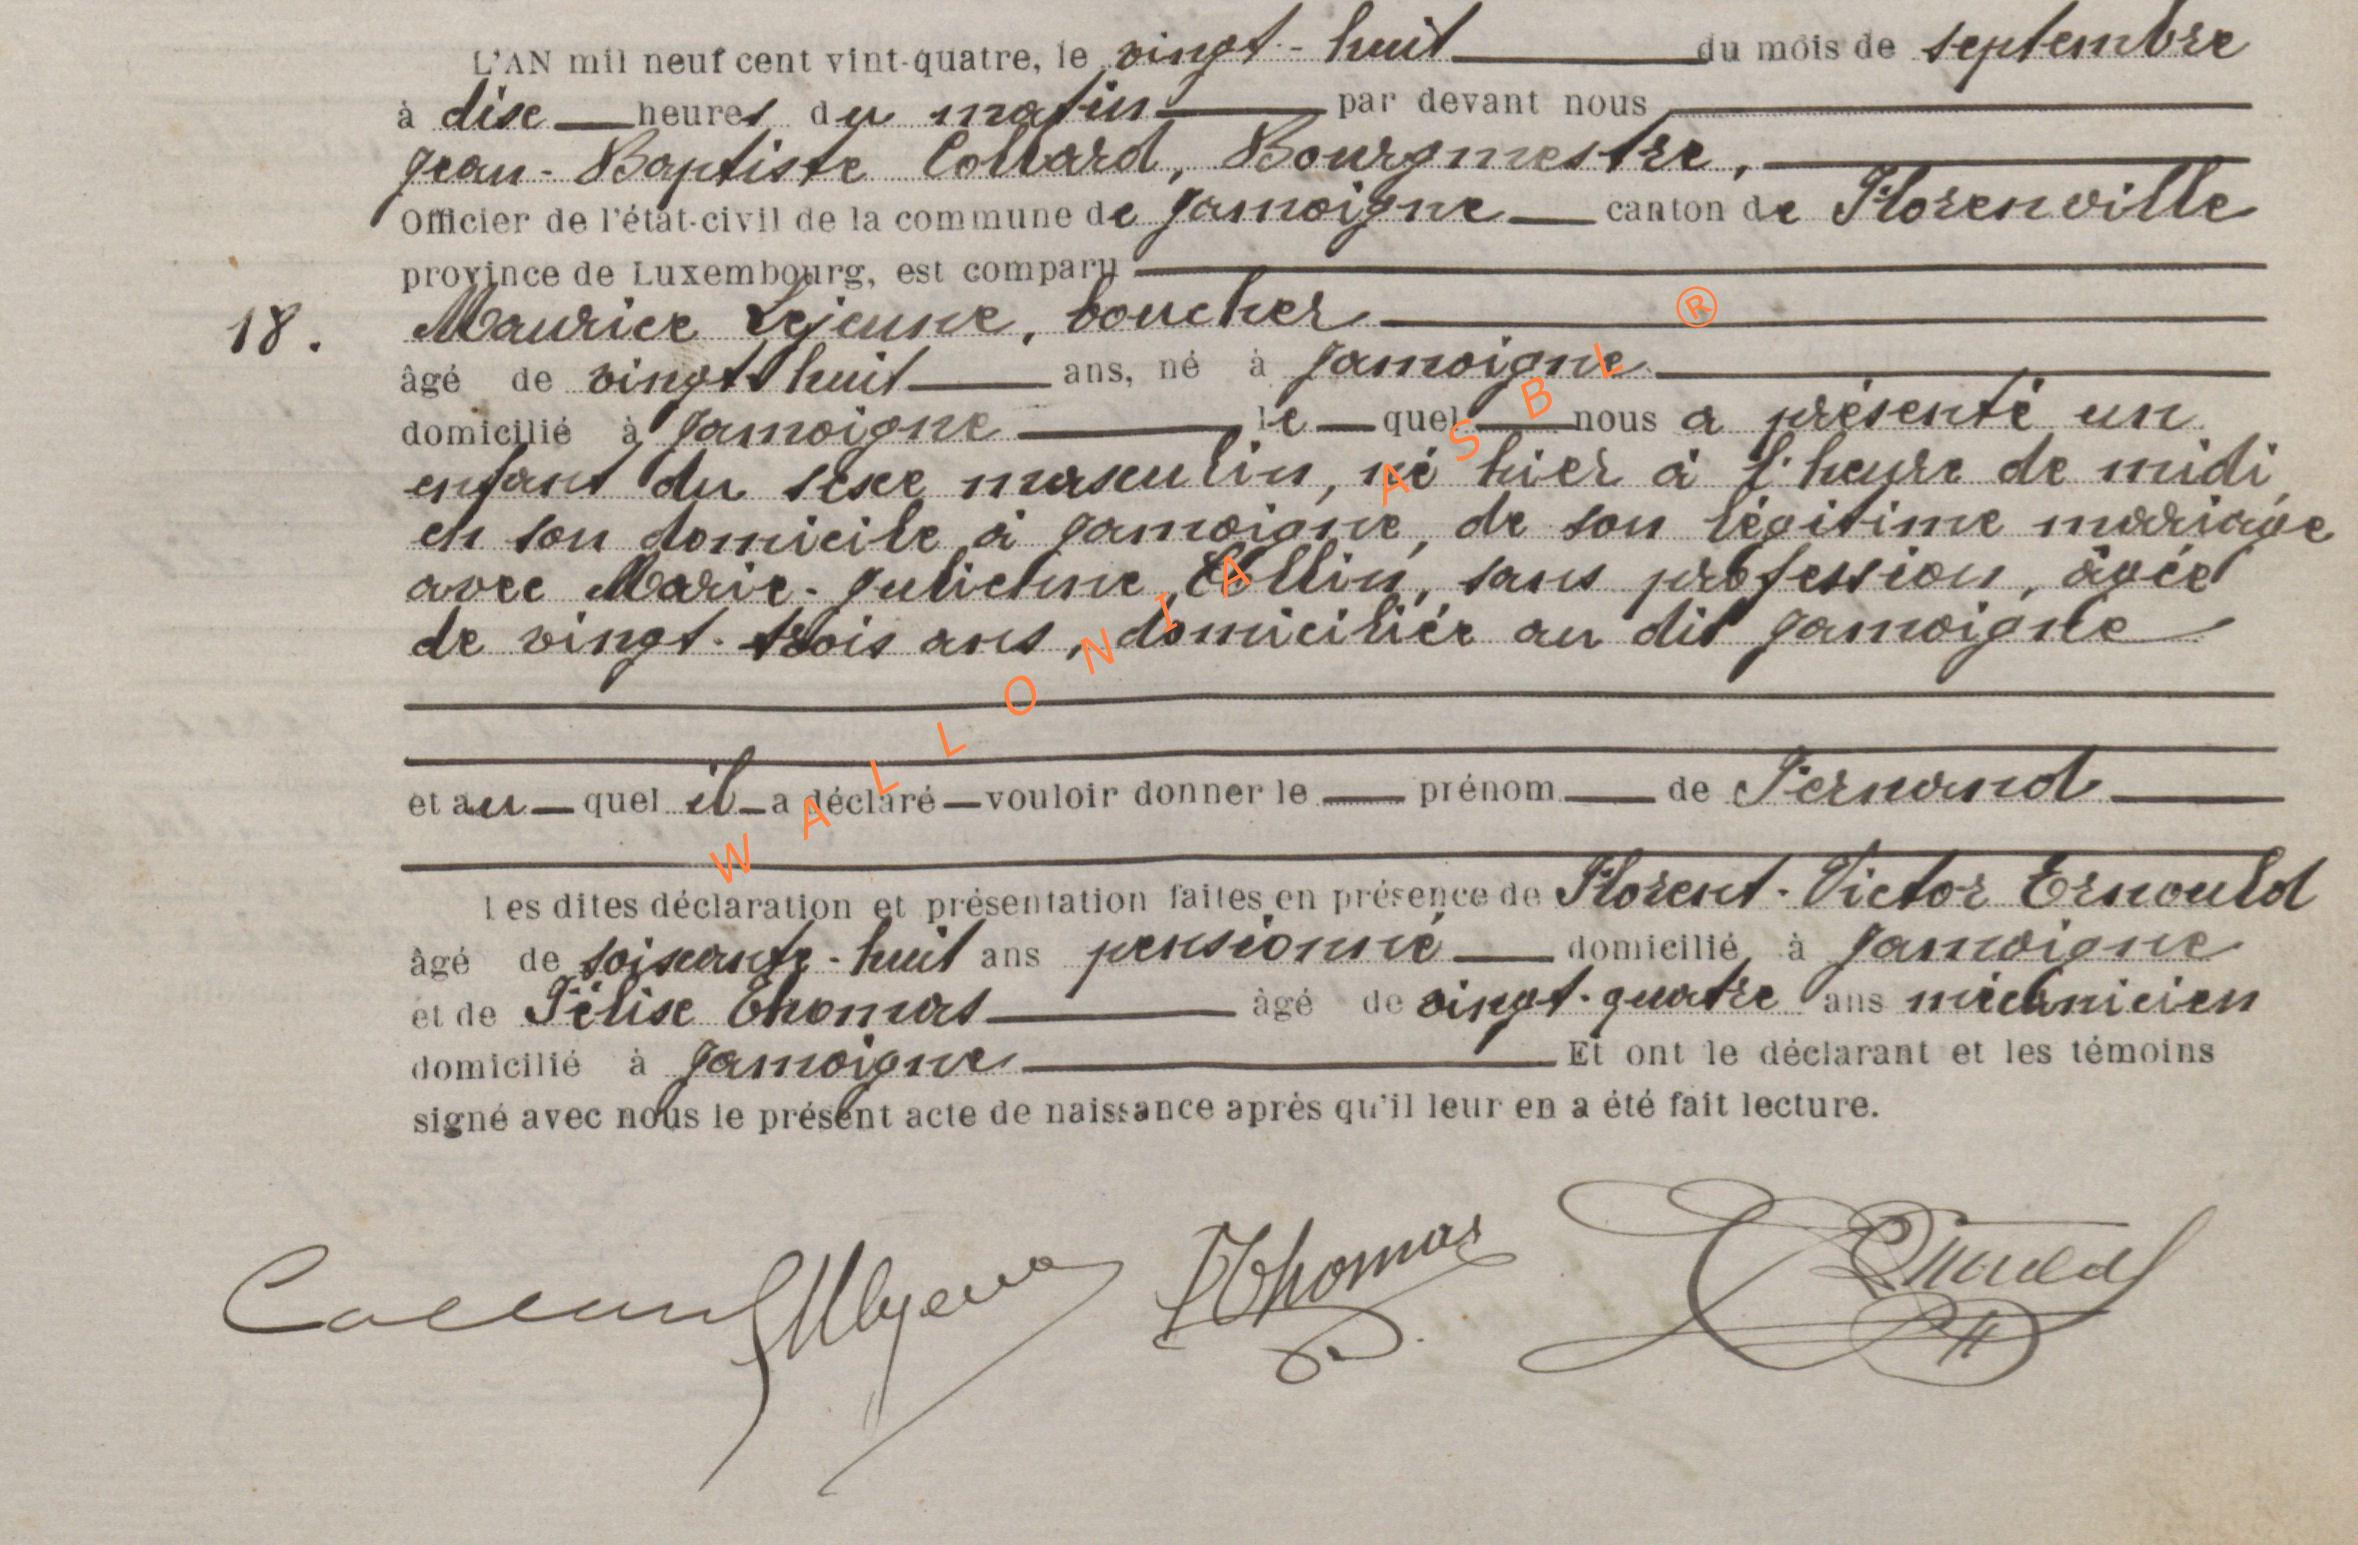 L'AN mil neuf cent vint-quatre, le vingt-huit du mois de septembre
à dix heures du matin par devant nous
Jean-Baptiste Collard, Bourgmestre,
Officier de l'état-civil de la commune de Jamoigne canton de Florenville
province de Luxembourg, est comparu
18. Maurice Lejeune, boucher
âgé de vingt huit ans, né à Jamoigne
domicilié à Jamoigne le quel nous a présenté un
enfant du sexe masculin, né hier à l'heure de midi,
en son domicile à Jamoigne, de son légitime mariage
avec Marie-Julienne Collin, sans profession, âgée
de vingt-trois ans, domiciliée au dit Jamoigne
et au quel il a déclaré vouloir donner le prénom de Fernand
Les dites déclaration et présentation faites en présence de Florent-Victor Ernould
âgé de soixante-huit ans pensionné domicilié à Jamoigne
et de Félix Thomas âgé de vingt-quatre ans mécanicien
domicilié à Jamoigne Et ont le déclarant et les témoins
signé avec nous le présent acte de naissance après qu'il leur en a été fait lecture.
Collard MLejeune FThomas Ernould
WALLONIA ASBL ®